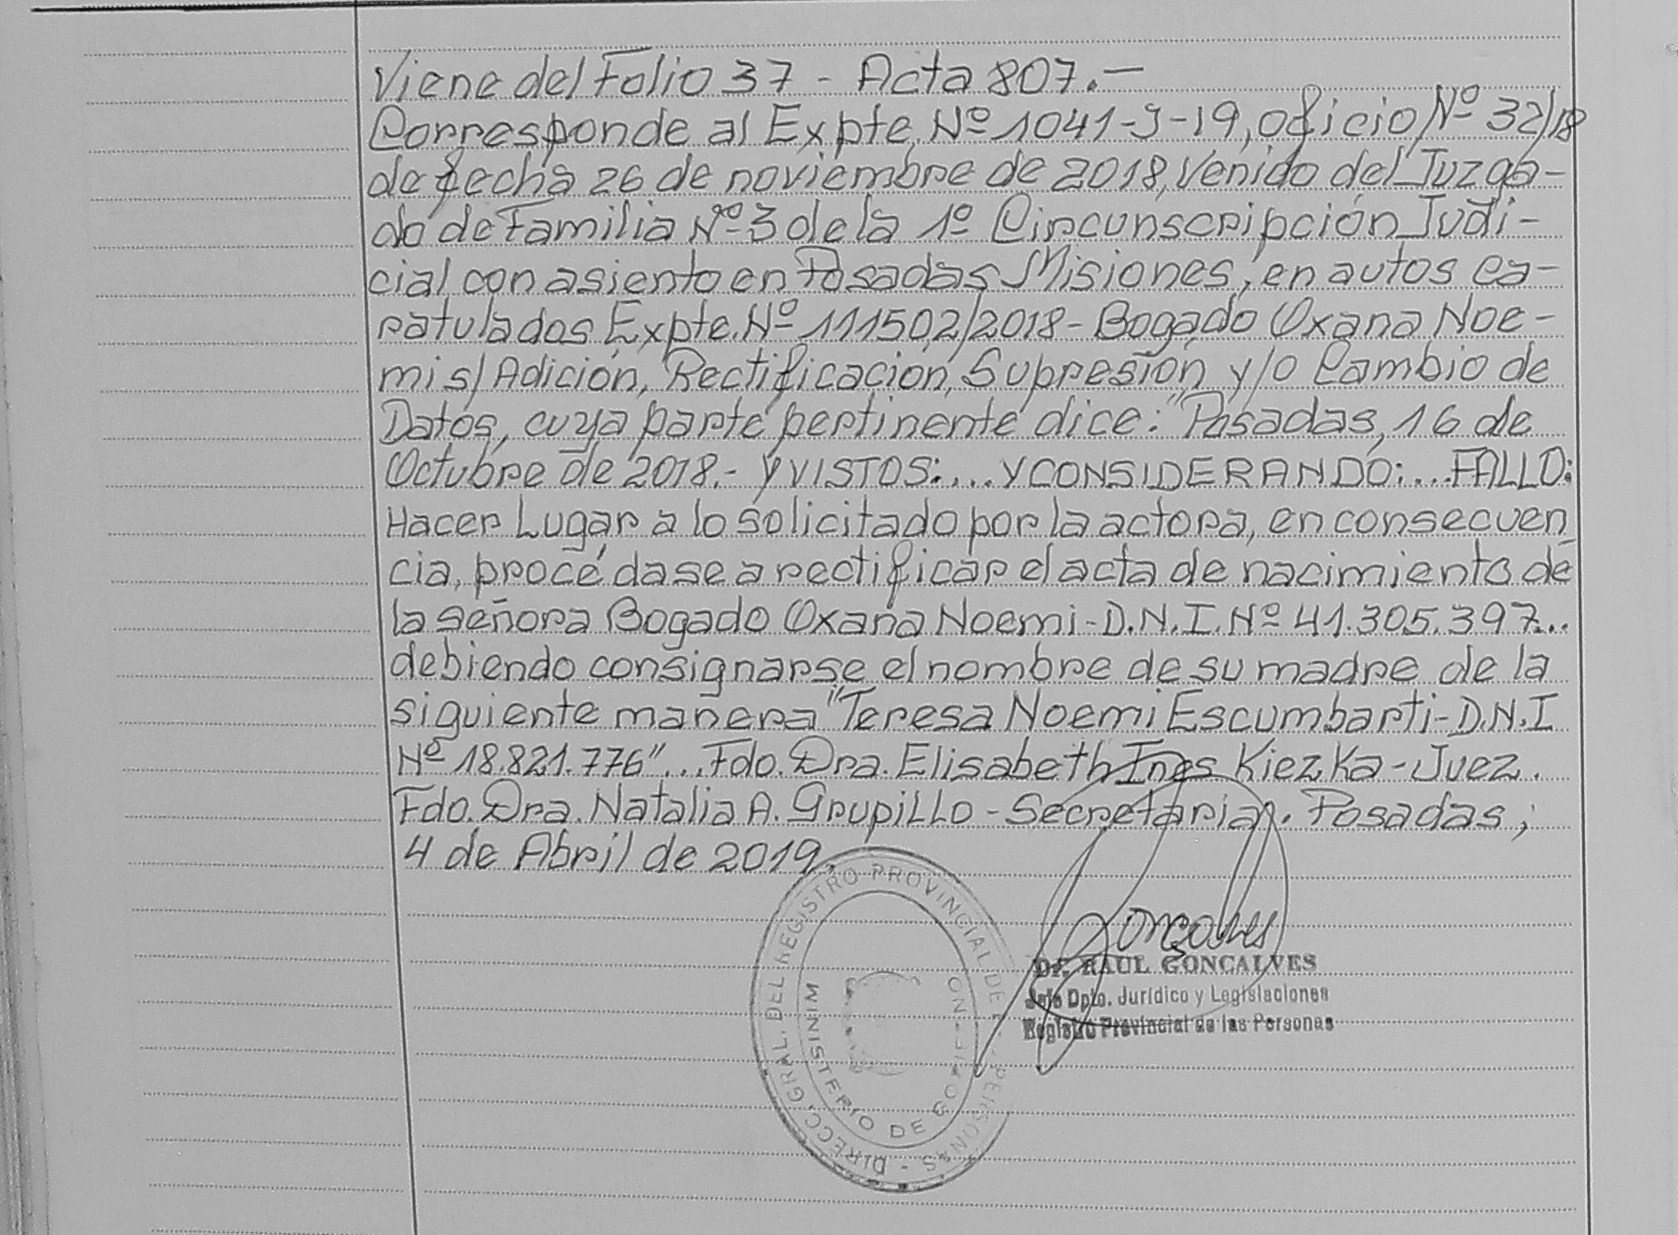 Viene del Folio 37 - Acta 807.-
Corresponde al Expte. Nº 1041-J-19, oficio Nº 32/18
de fecha 26 de noviembre de 2018, Venido del Juzga-
do de Familia Nº 3 de la 1º Circunscripción Judi-
cial con asiento en Posadas Misiones, en autos ca-
ratulados Expte. Nº 111502/2018 - Bogado Oxana Noe-
mi s/ Adición, Rectificación, Supresión y/o Cambio de
Datos, cuya parte pertinente dice: "Posadas, 16 de
Octubre de 2018.- Y VISTOS:... Y CONSIDERANDO:... FALLO:
Hacer Lugar a lo solicitado por la actora, en consecuen
cia, procédase a rectificar el acta de nacimiento de
la señora Bogado Oxana Noemi - D.N.I. Nº 41.305.397...
debiendo consignarse el nombre de su madre de la
siguiente manera "Teresa Noemi Escumbarti - D.N.I
Nº 18.821.776"... Fdo. Dra. Elisabeth Ines Kiezka - Juez.
Fdo. Dra. Natalia A. Grupillo - Secretaria. Posadas,
4 de Abril de 2019.
Gonçalves
Dr. RAUL GONCALVES
Jefe Dpto. Jurídico y Legislaciones
Registro Provincial de las Personas
DIRECC. GRAL. DEL REGISTRO PROVINCIAL DE PERSONAS
MINISTERIO DE GOBIERNO